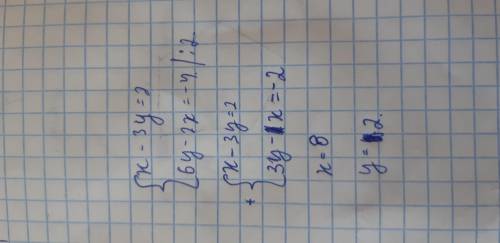 { x - 3y = 2
{ 6y - 2x = -4 | : 2
{ x - 3y = 2
+ { 3y - x = -2
x = 8
y = 2.